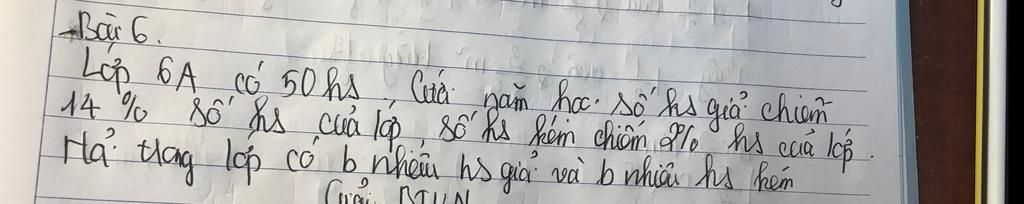 Bài 6.
Lớp 6A có 50 hs. Cuối năm học. số hs giỏi chiếm
14 % số hs của lớp, số hs kém chiếm 2% hs của lớp.
Hỏi trong lớp có b nhiêu hs giỏi và b nhiêu hs kém
BTVN